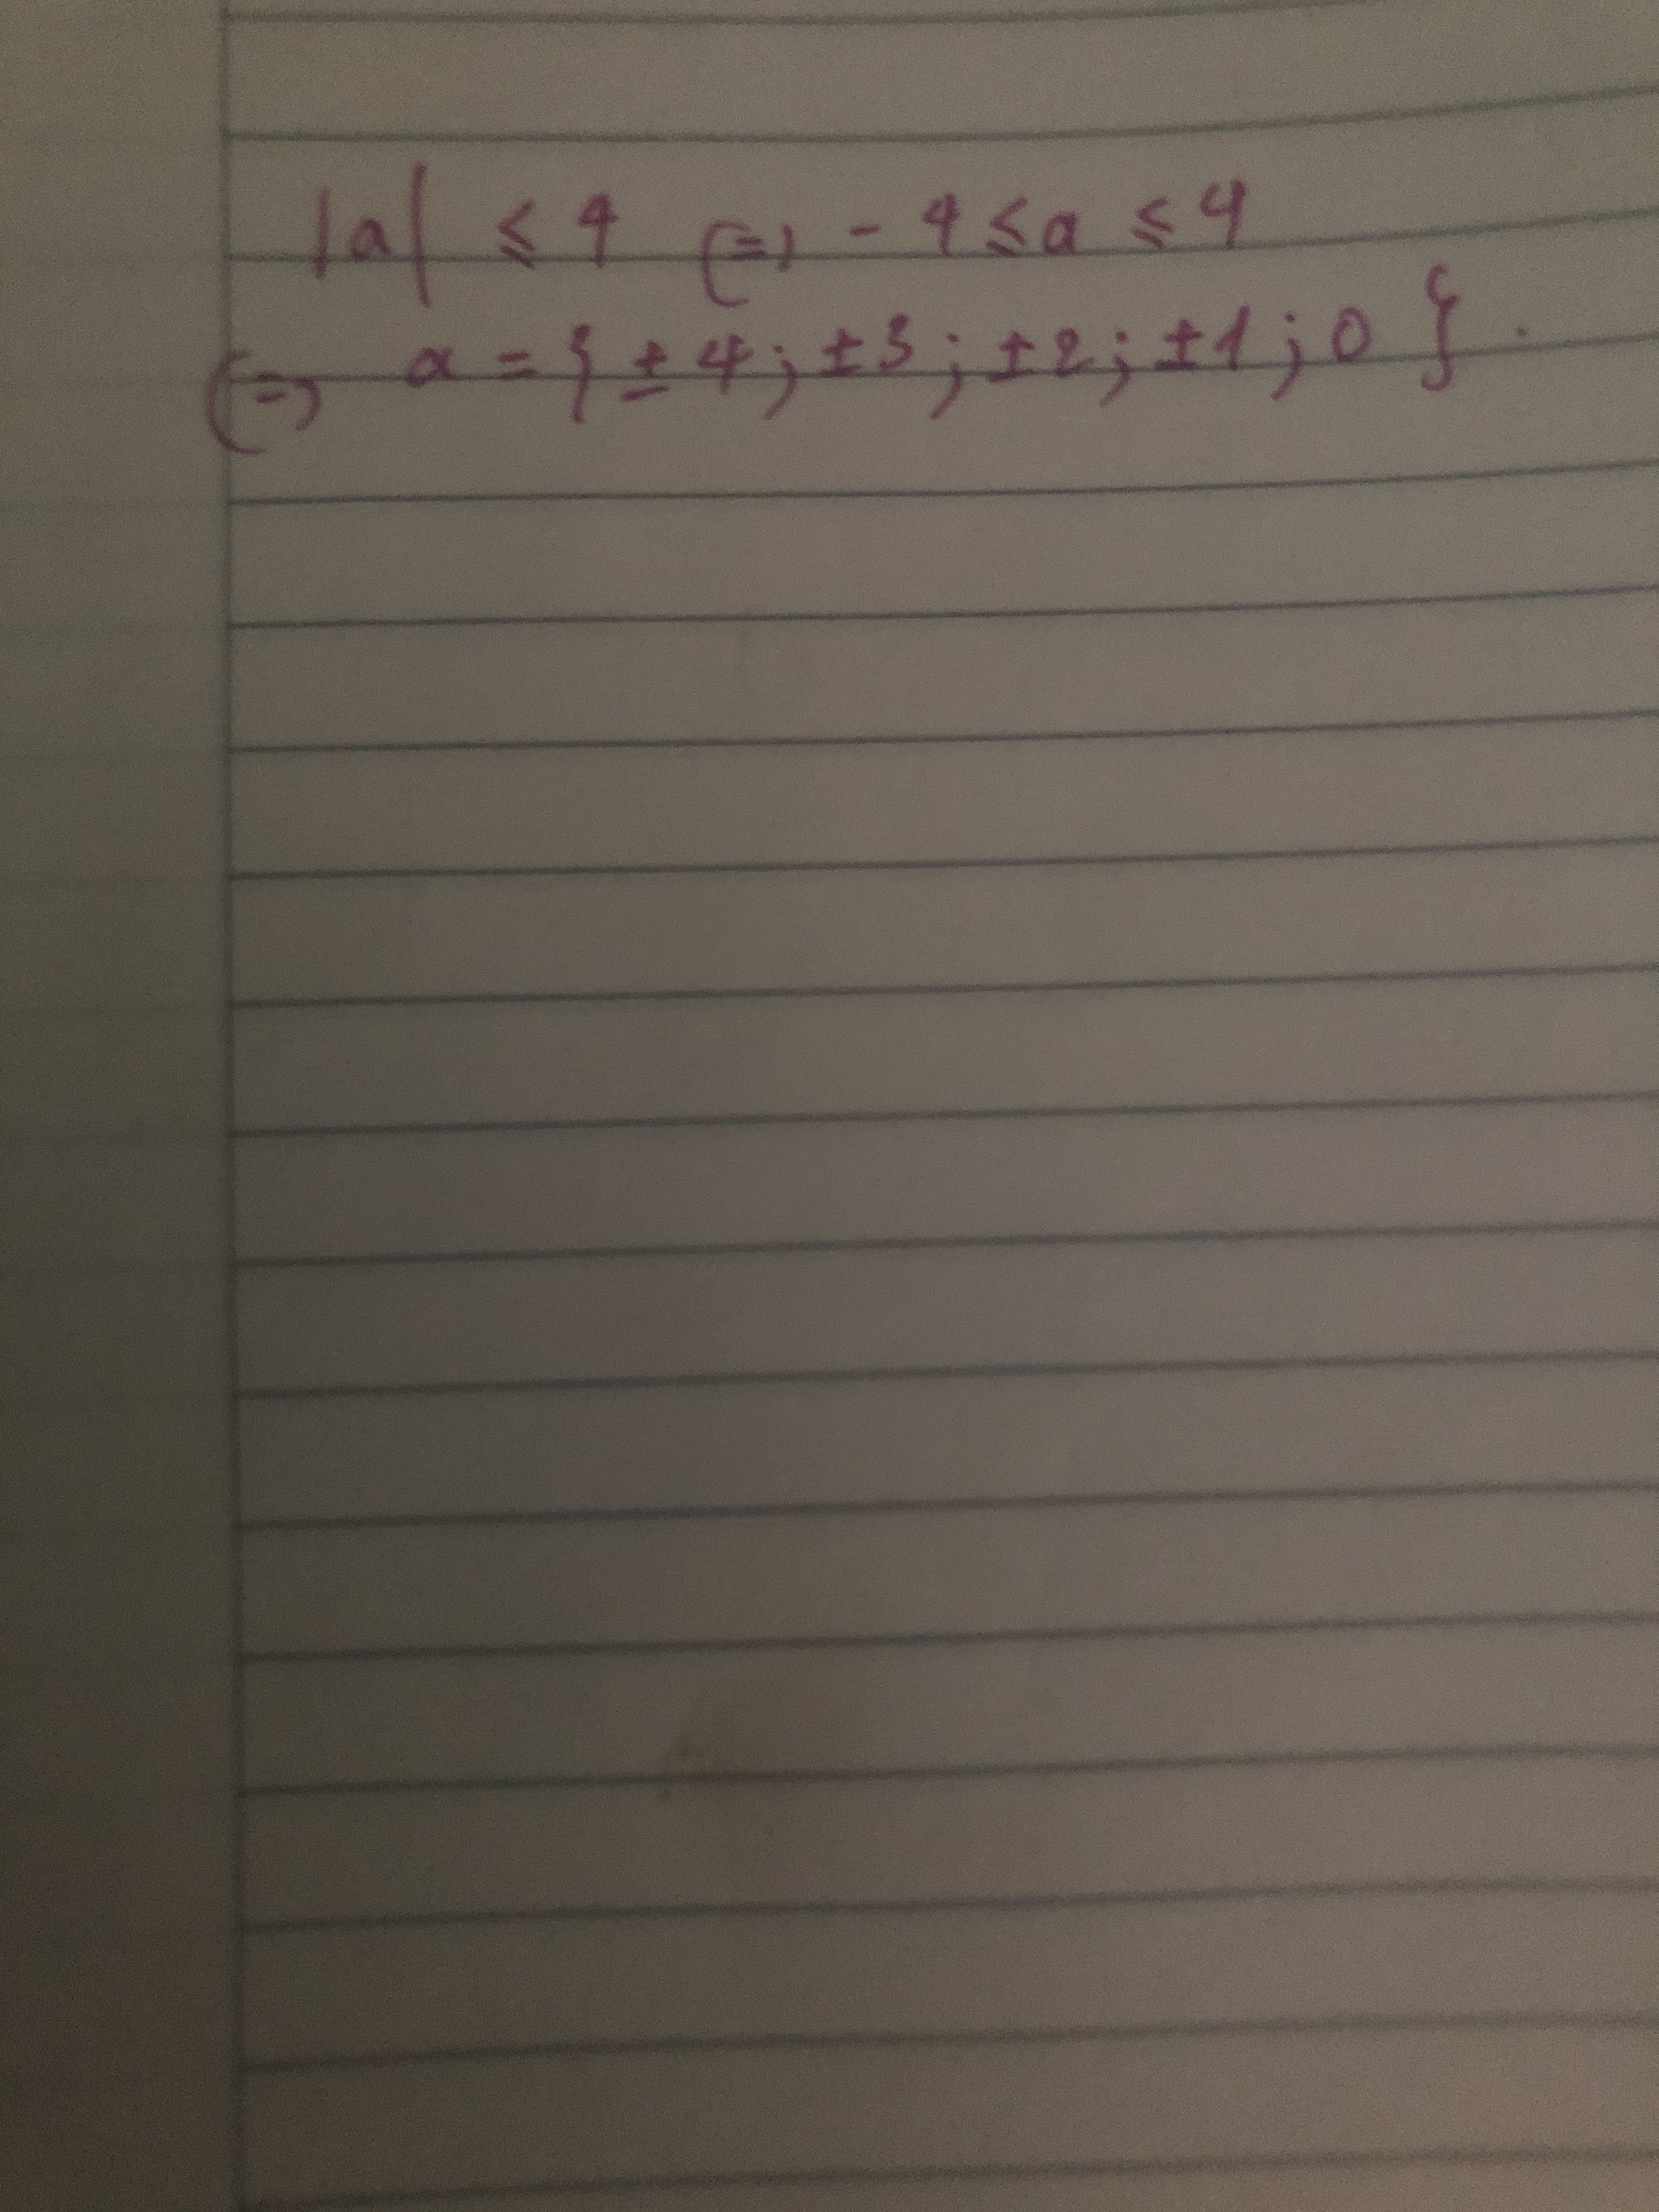 |a| ⩽ 4 (=) - 4 ⩽ a ⩽ 4
(=) a = { ± 4 ; ±3 ; ±2 ; ±1 ; 0 } .